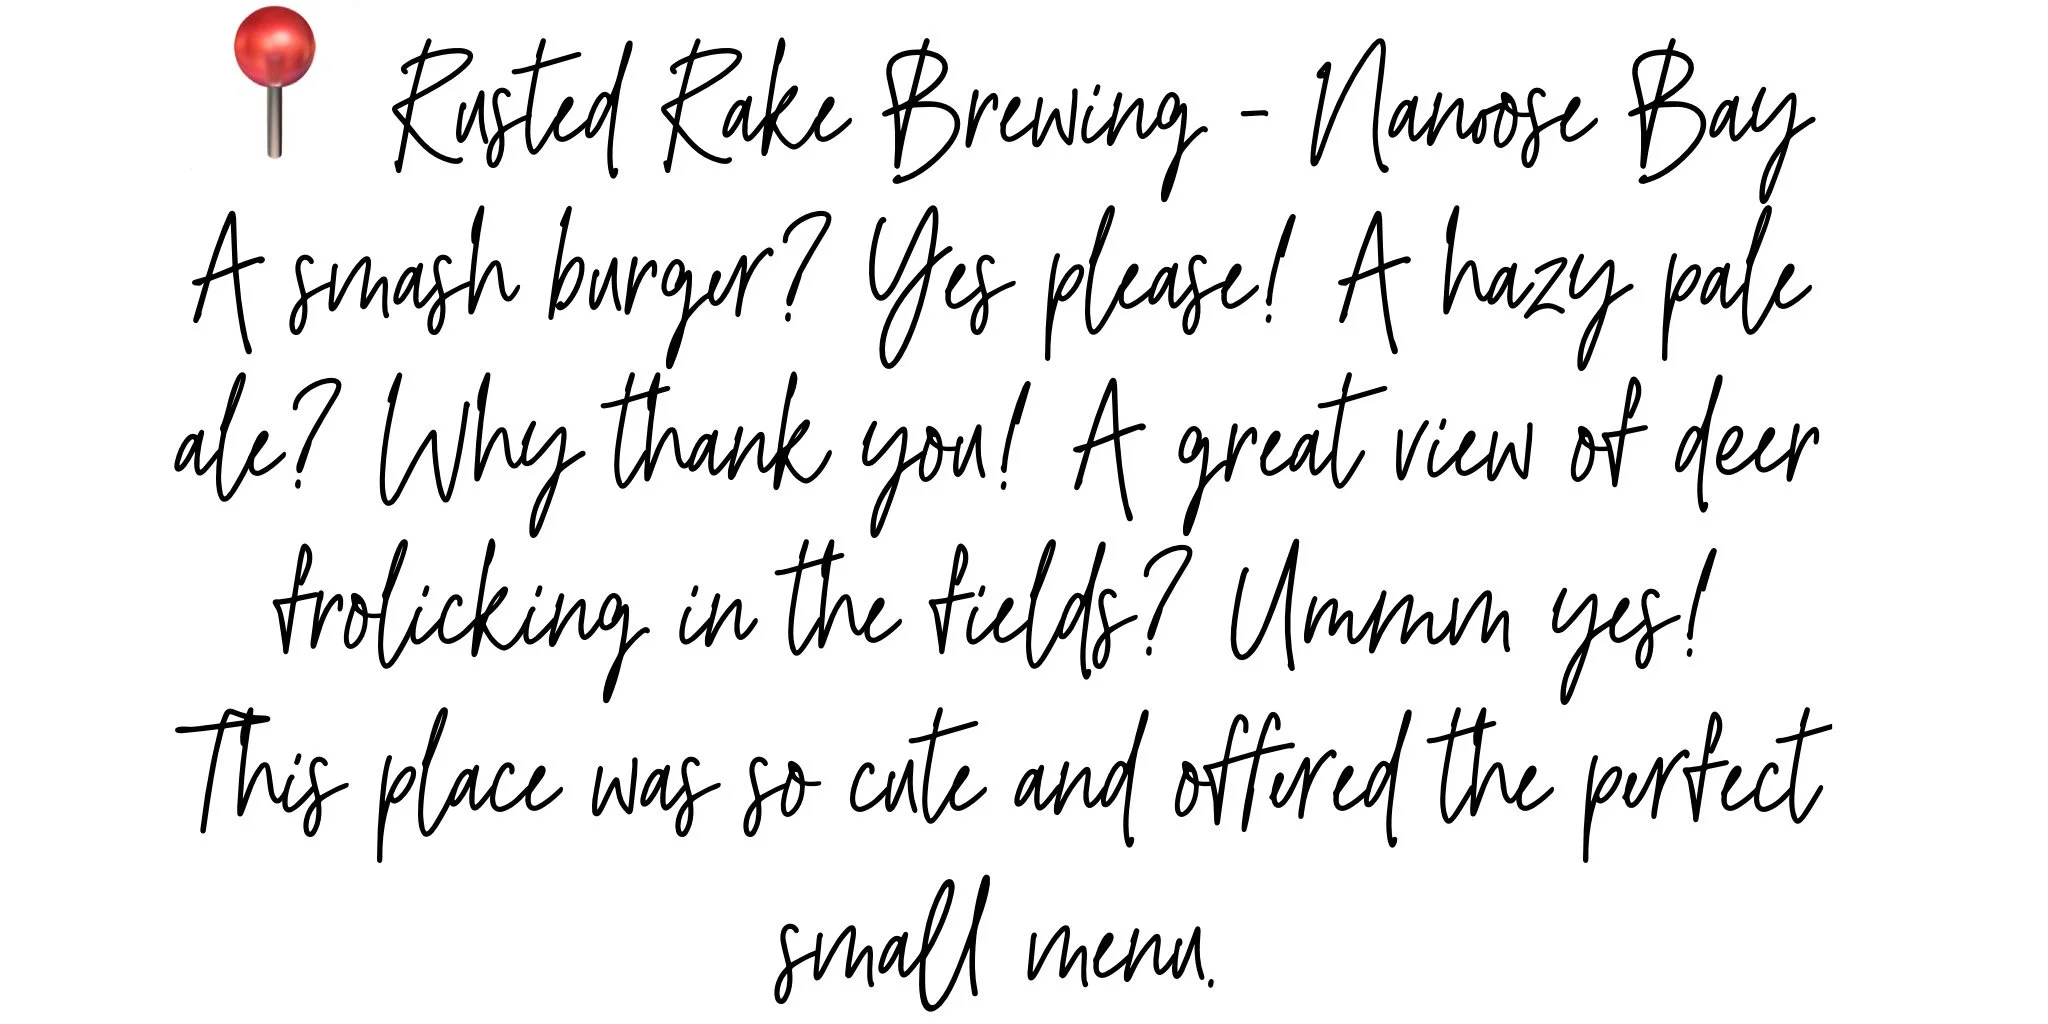 📍 Rusted Rake Brewing - Nanoose Bay
A smash burger? Yes please! A hazy pale
ale? Why thank you! A great view of deer
frolicking in the fields? Ummm yes!
This place was so cute and offered the perfect
small menu.